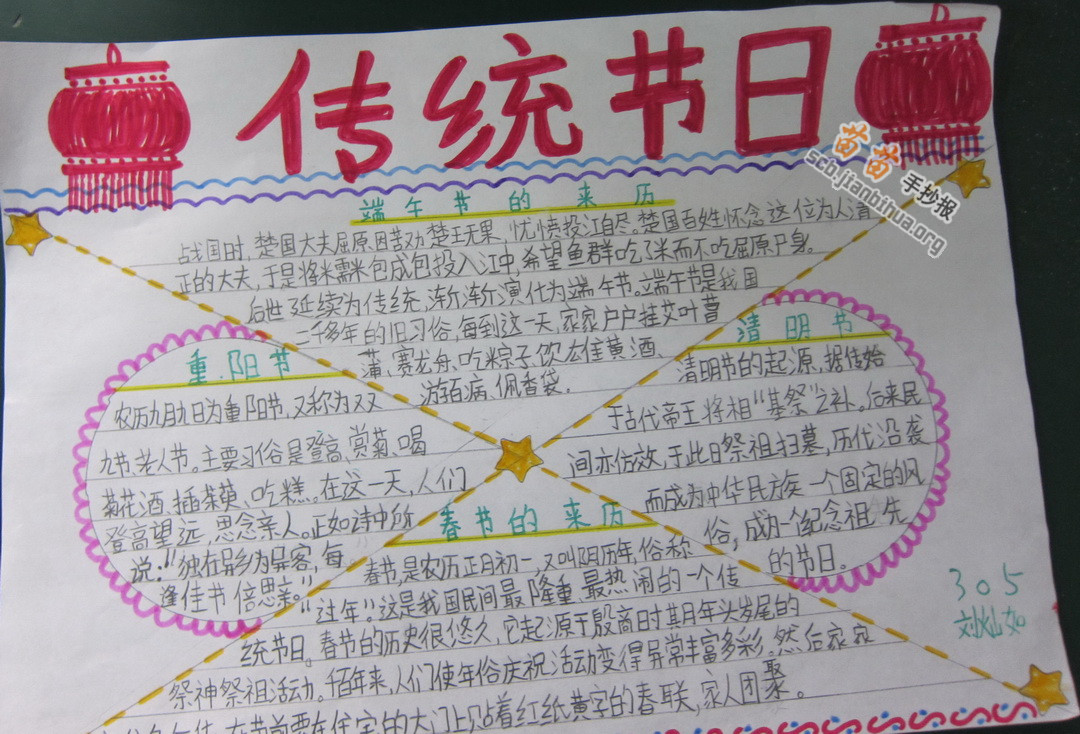 传统节日
苗苗
手抄报
scb.jianbihua.org
端午节的来历
战国时,楚国大夫屈原因苦劝楚王无果,忧愤投江自尽。楚国百姓怀念这位为人清
正的大夫,于是将米需米包成包投入江中,希望鱼群吃了米而不吃屈原尸身。
后世延续为传统,渐渐演化为端午节。端午节是我国
二千多年的旧习俗,每到这一天,家家户户挂艾叶菖
蒲,赛龙舟,吃粽子,饮雄黄酒,
游百病,佩香袋.
重阳节
农历九月九日为重阳节,又称为双
九节,老人节。主要习俗是登高,赏菊,喝
菊花酒,插茱萸、吃糕。在这一天,人们
登高望远,思念亲人。正如诗中所
说:"独在异乡为异客,每
逢佳节倍思亲。"
清明节
清明节的起源,据传始
于古代帝王将相"墓祭"之礼。后来民
间亦仿效,于此日祭祖扫墓,历代沿袭
而成为中华民族一个固定的风
俗,成为一个纪念祖先
的节日。
春节的来历
春节,是农历正月初一,又叫阴历年,俗称
"过年"。这是我国民间最隆重、最热闹的一个传
统节日。春节的历史很悠久,它起源于殷商时其月年头岁尾的
祭神祭祖活动。千百年来,人们使年俗庆祝活动变得异常丰富多彩。然后家家
在节前要在住宅的大门上贴着红纸黄字的春联,家人团聚。
305